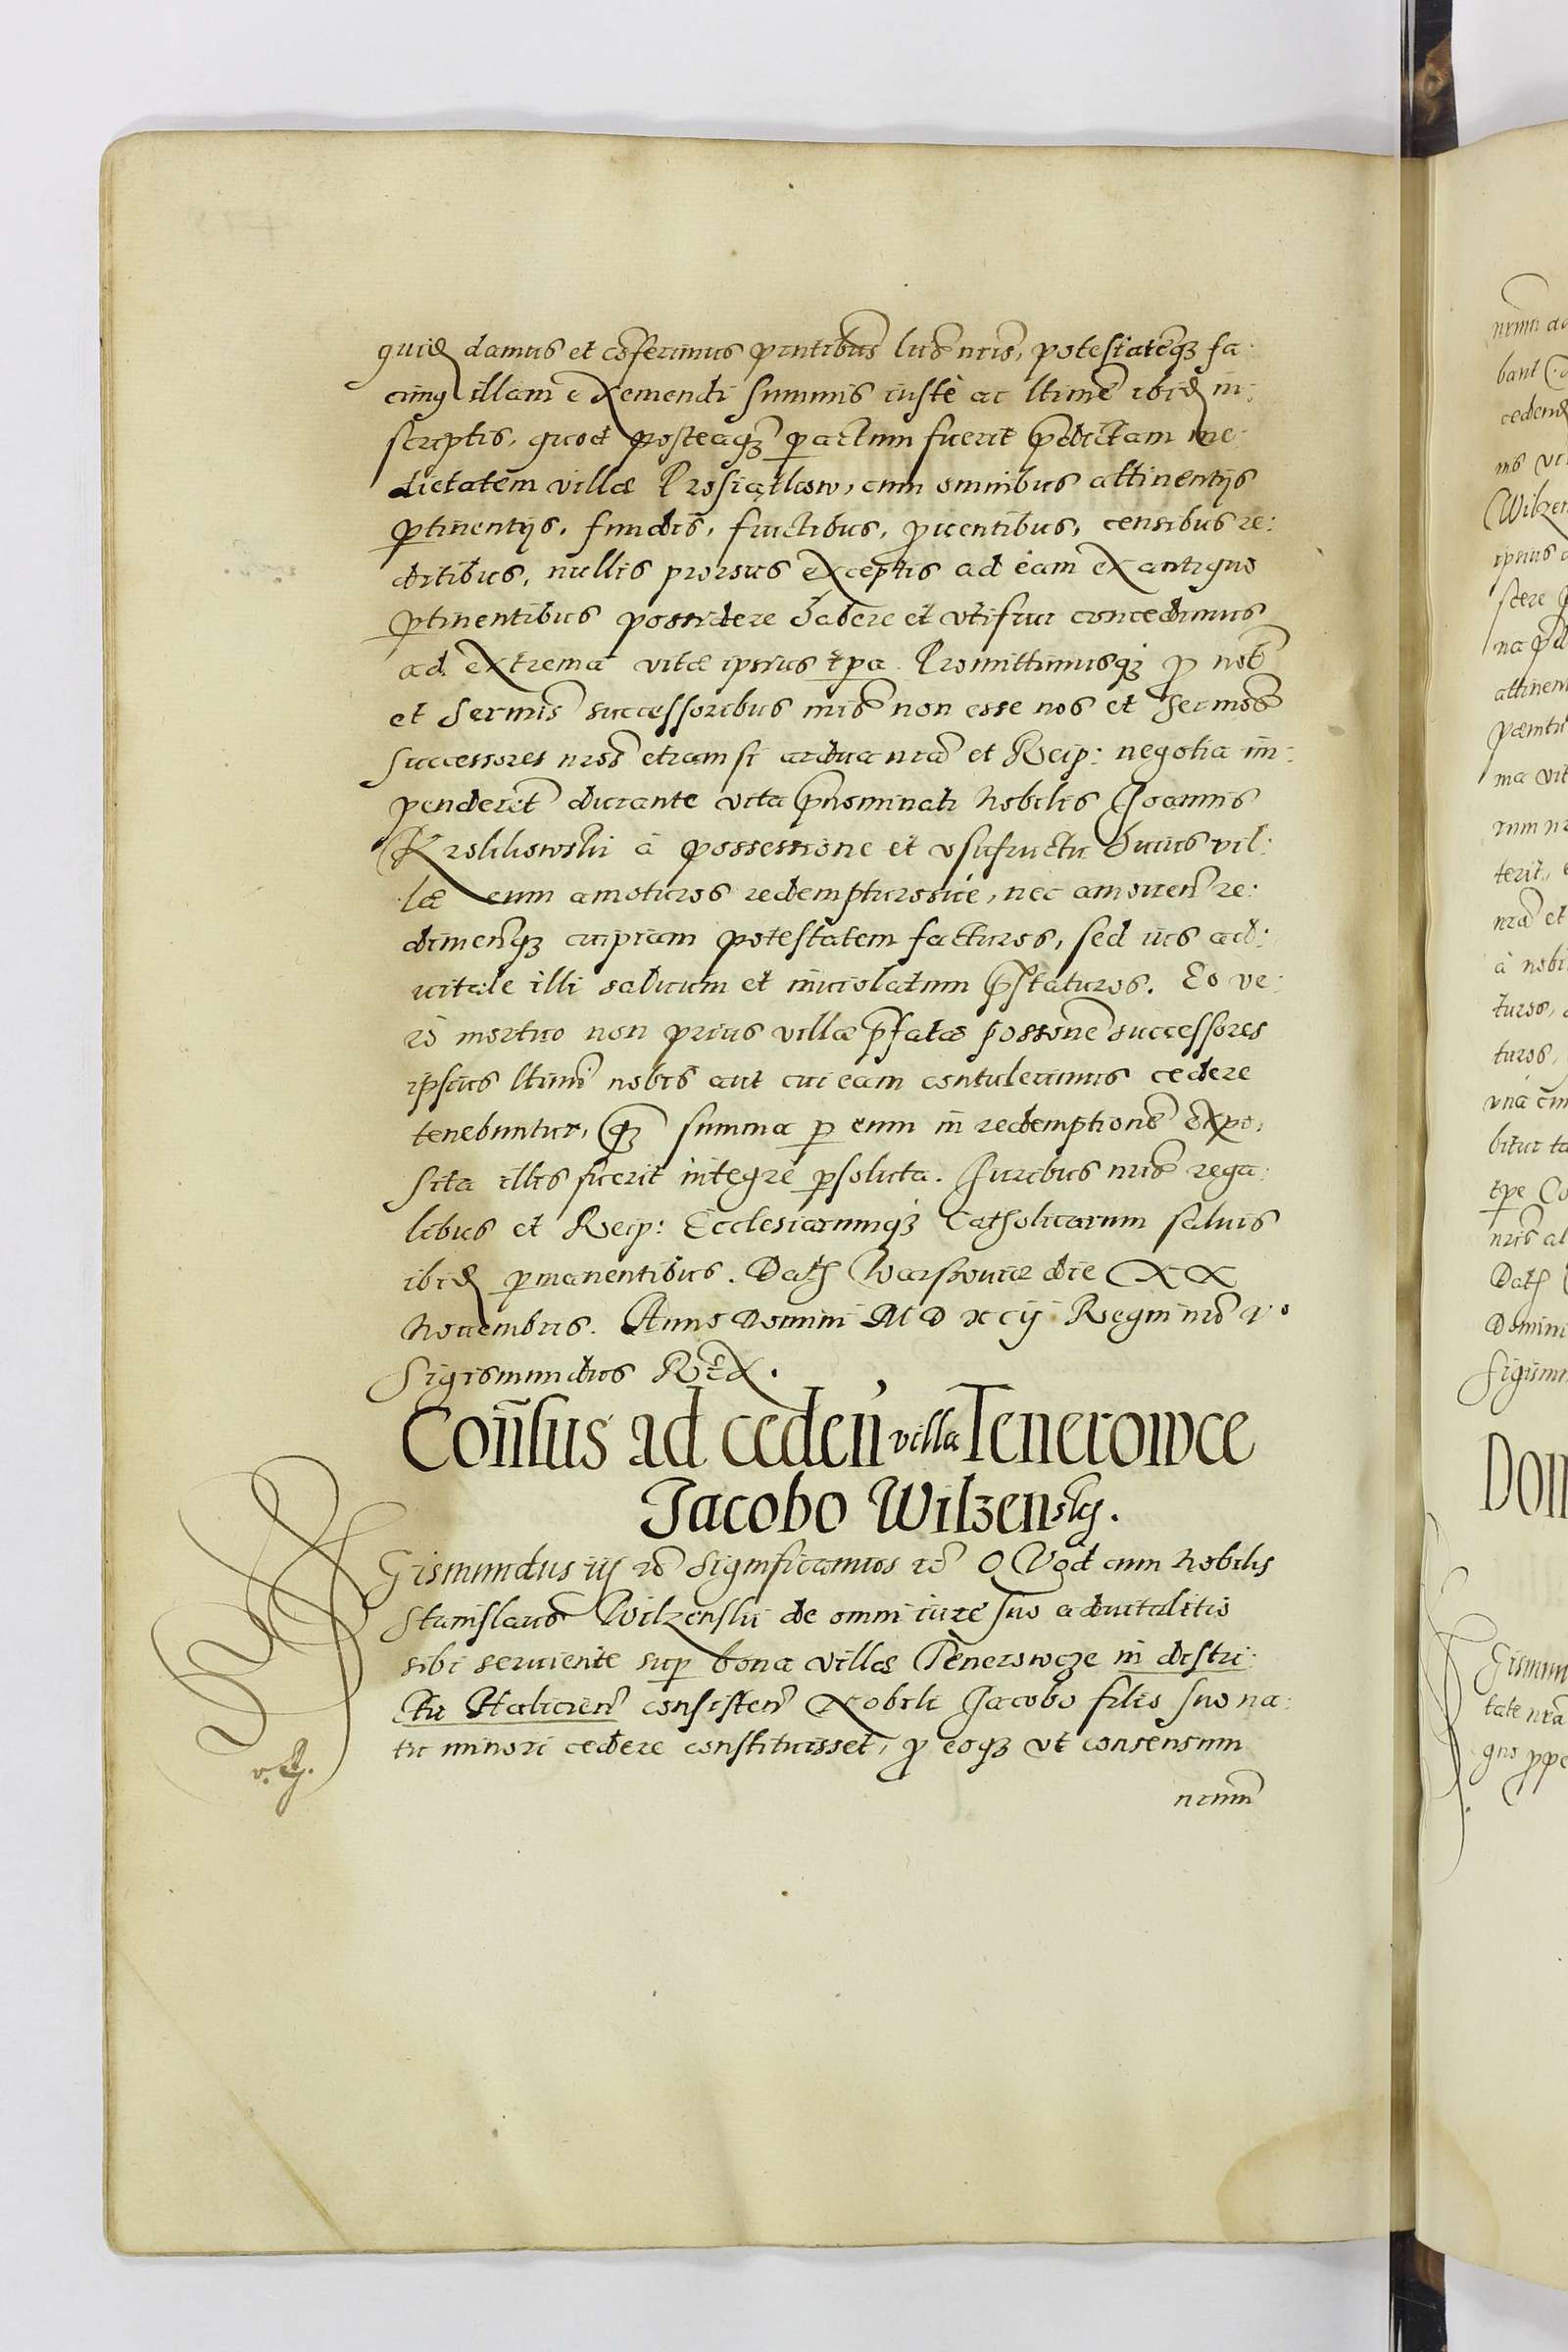 quid damus et cōferimus pntibus lris nris, potestatēq3 fa:
cimus illam exemendi summis iuste ac ltime ibid in:
scriptis, quod posteaq3 pactum fuerit pdictam me:
dietatem villæ Prosiatkow, cum omnibus attinentijs
ptinentijs, fundis, fructibus, puentibus, censibus re:
ditibus, nullis prorsus exceptis ad eam ex antiquo
ptinentibus possidere habere et vtifrui concedimus
ad extrema vitæ ipsius tpa. Promittimusq3 p nob
et Sermis successoribus nris non esse nos et Sermos
successores nros etiam si ardua nra et Reip: negotia im:
penderēt durante vita pnominati Nobilis Joannis
Krolikowski à possessione et vsufructu huius vil:
læ eum amoturos redempturosue, nec amouen re:
dimenq3 cuipiam potestatem facturos, sed ius ad:
uitale illi saluum et inuiolatum pstaturos. Eo ve:
rò mortuo non prius villæ pfatæ possone successores
ipsius ltimi nobis aut cui eam contulerimus cedere
tenebuntur, q3 summa p eum in redemptione expo:
sita illis fuerit integrè psoluta. Juribus nris rega:
libus et Reip: Ecclesiarumq3 Catholicarum saluis
ibid pmanentibus. Dat Warszouiæ die XX
Nouembris. Anno Domini M D xcij Regni nri v°
Sigismundus Rex.
Conñsus ad ceden villa Tenerowce
Jacobo Wilzensky.
Sigismundus iij rc Significamus rc Quod cum Nobilis
Stanislaus Wilzenski de omni iure suo aduitalitio
sibi seruiente sup bona villæ Tenerowcze in distri:
ctu Haliciēn consisten Nobili Jacobo filio suo na:
tu minori cedere constituisset, p eoq3 vt consensum
nrum